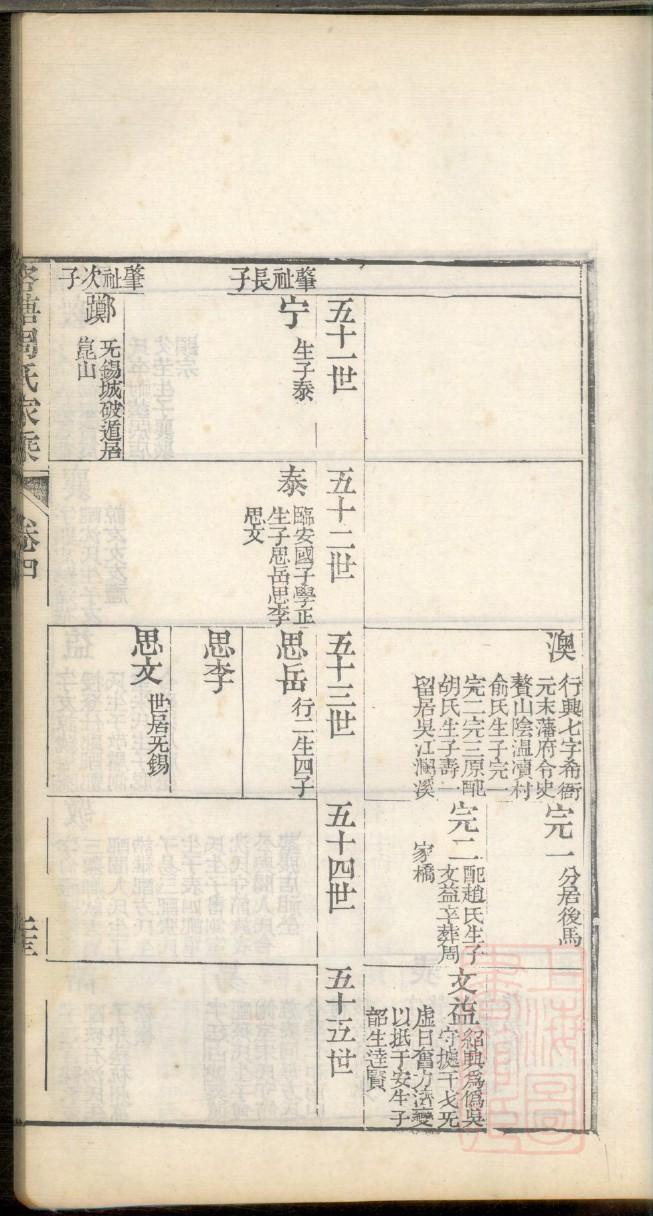 澳
行興七字希衙
元末藩府令史
贅山陰溫瀆村
俞氏生子完一
完二完三原配
胡氏生子壽一
留居吳江瀾溪
完一
分居後馬
完二
配趙氏生子
文益卒葬周
家橋
文益
紹興為偽吳
守據干戈无
虛日奮力法變
以抵于安生子
部生達賢
五十一世
五十二世
五十三世
五十四世
五十五世
肇祉長子
宁
生子泰
泰
臨安國子學正
生子思岳思李
思文
思岳
行二生四子
思李
肇祉次子
躑
无錫城破遁居
崑山
思文
世居无錫
卷四